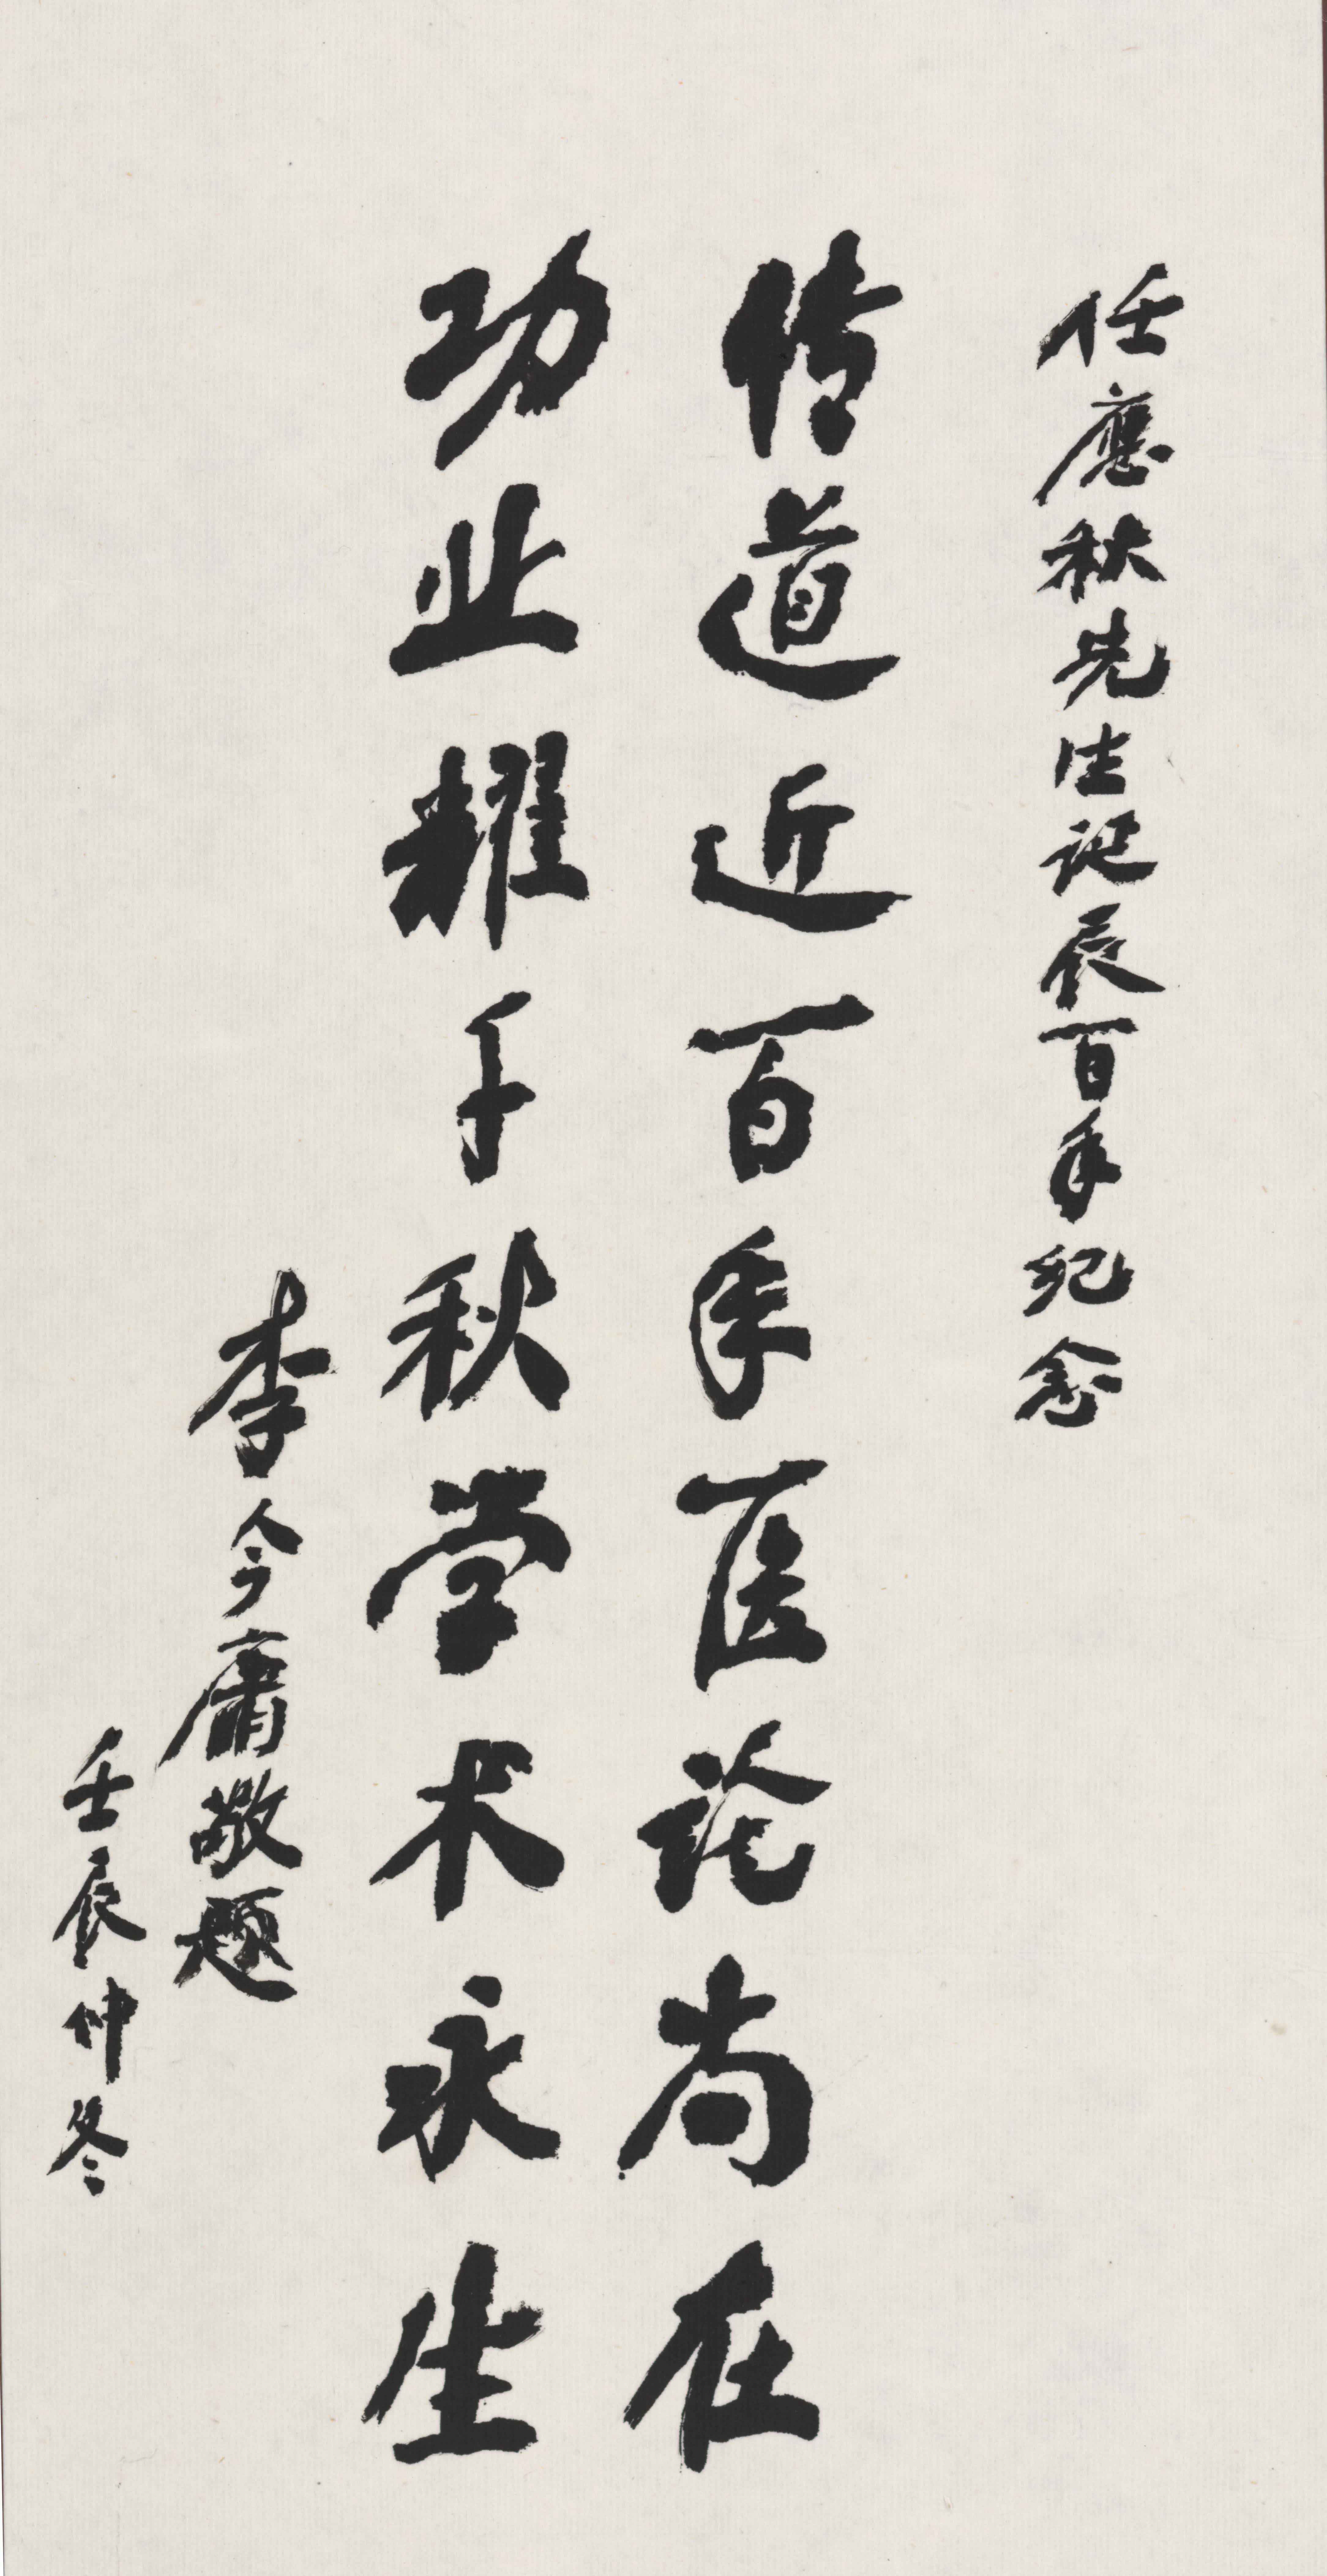 任應秋先生诞辰百年纪念
传道近百年医论尚在
功业耀千秋学术永生
李今庸敬题
壬辰仲冬